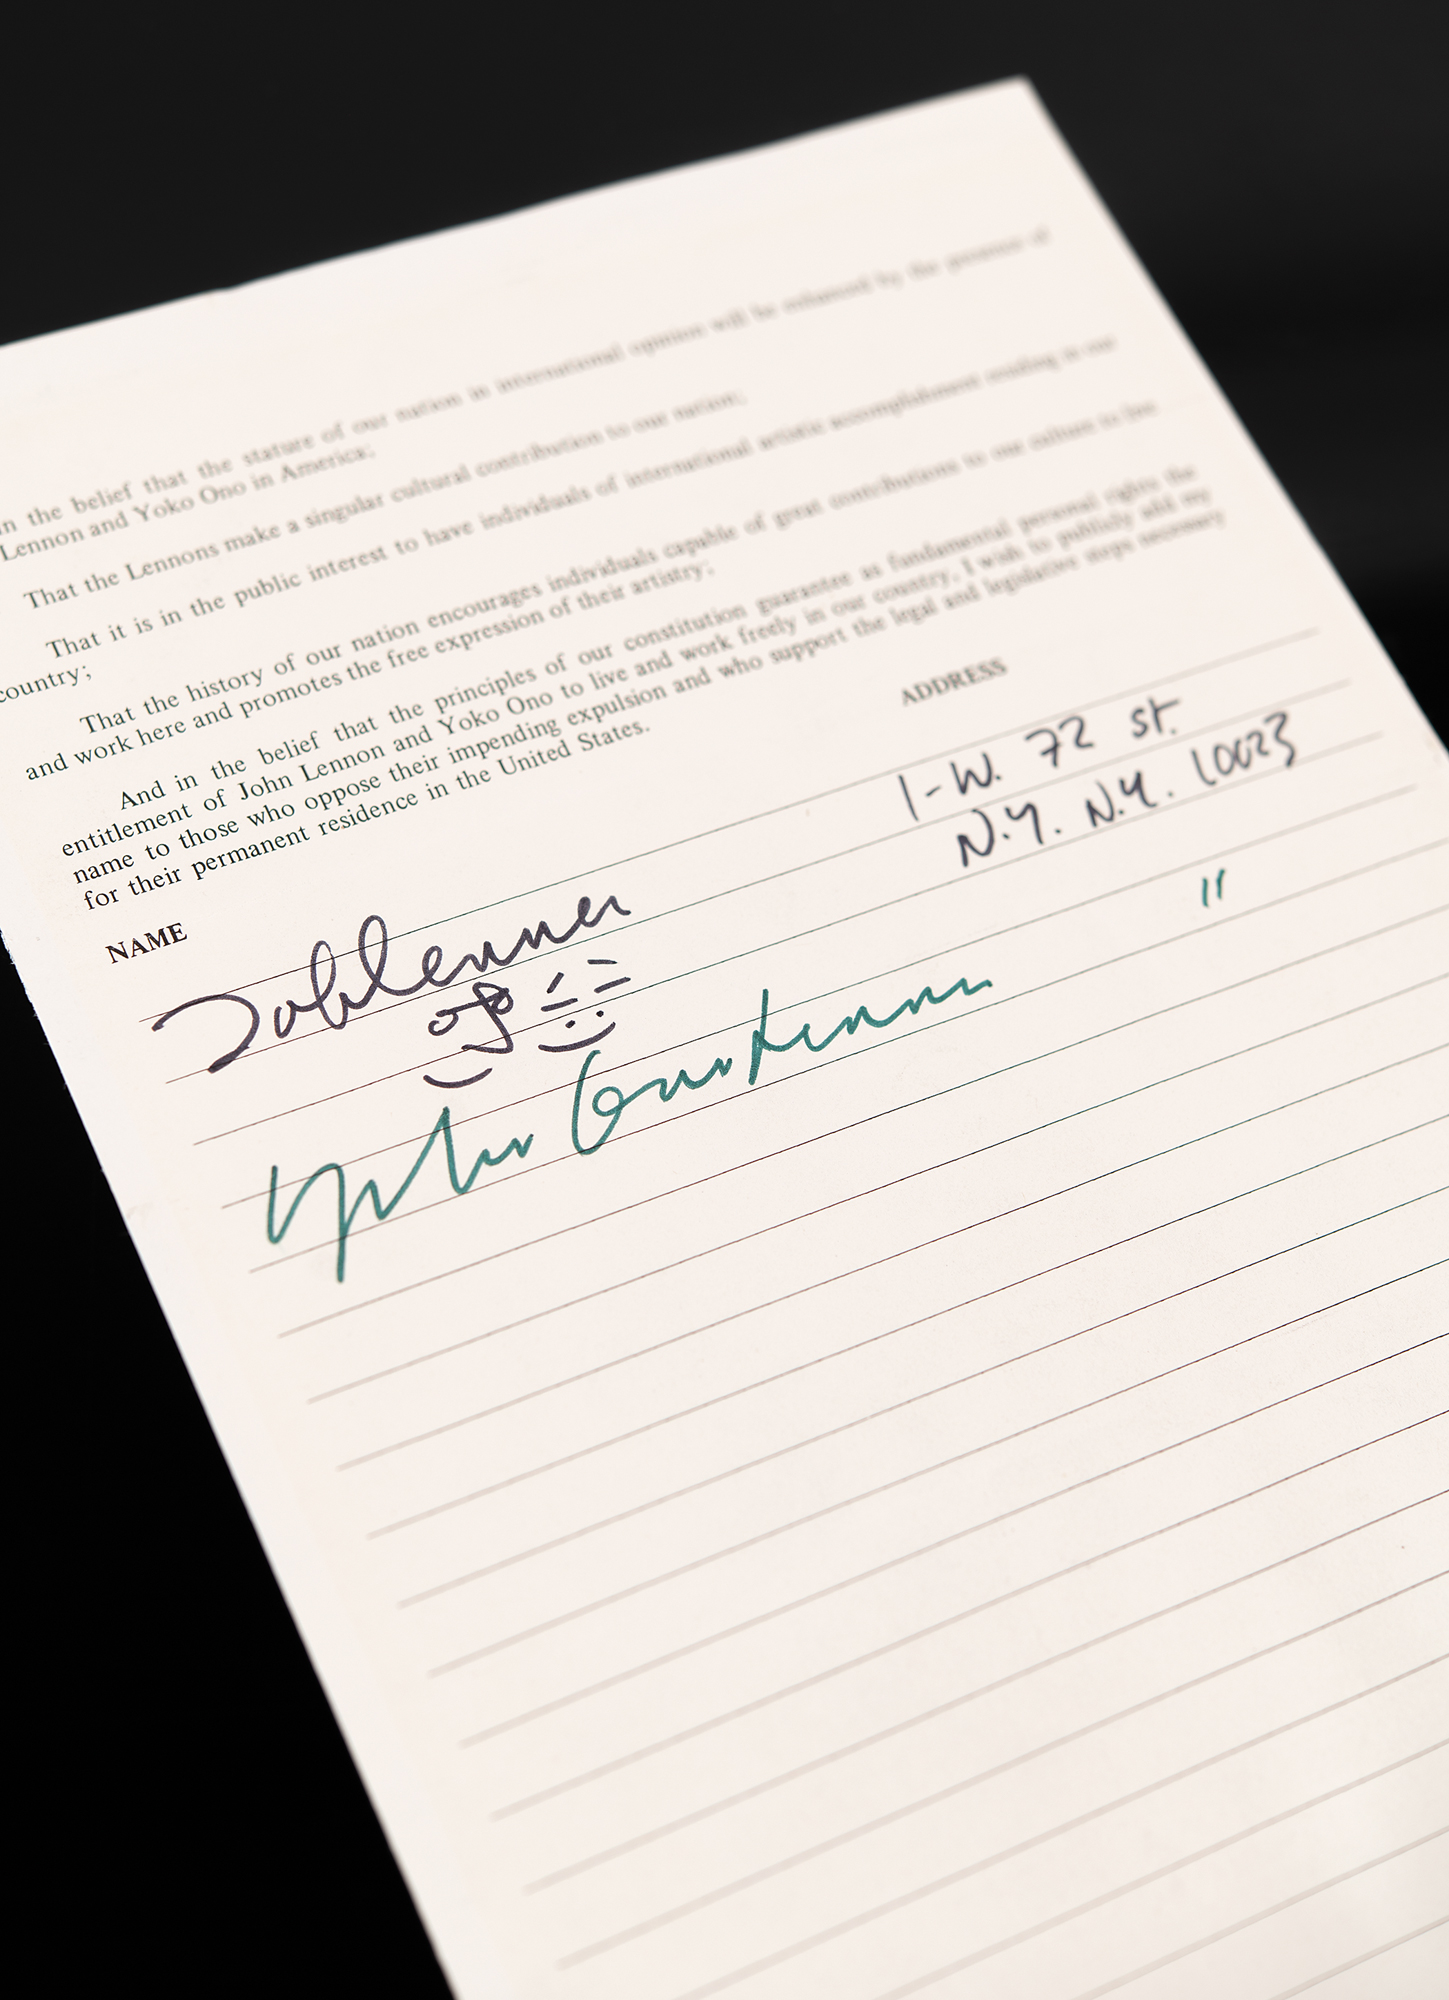 in the belief that the stature of our nation in international opinion will be enhanced by the presence of
Lennon and Yoko Ono in America;
That the Lennons make a singular cultural contribution to our nation;
That it is in the public interest to have individuals of international artistic accomplishment residing in our
country;
That the history of our nation encourages individuals capable of great contributions to our culture to live
and work here and promotes the free expression of their artistry;
And in the belief that the principles of our constitution guarantee as fundamental personal rights the
entitlement of John Lennon and Yoko Ono to live and work freely in our country, I wish to publicly add my
name to those who oppose their impending expulsion and who support the legal and legislative steps necessary
for their permanent residence in the United States.
NAME ADDRESS
John Lennon 1-W. 72 St.
N.Y. N.Y. 10023
Yoko Ono Lennon "